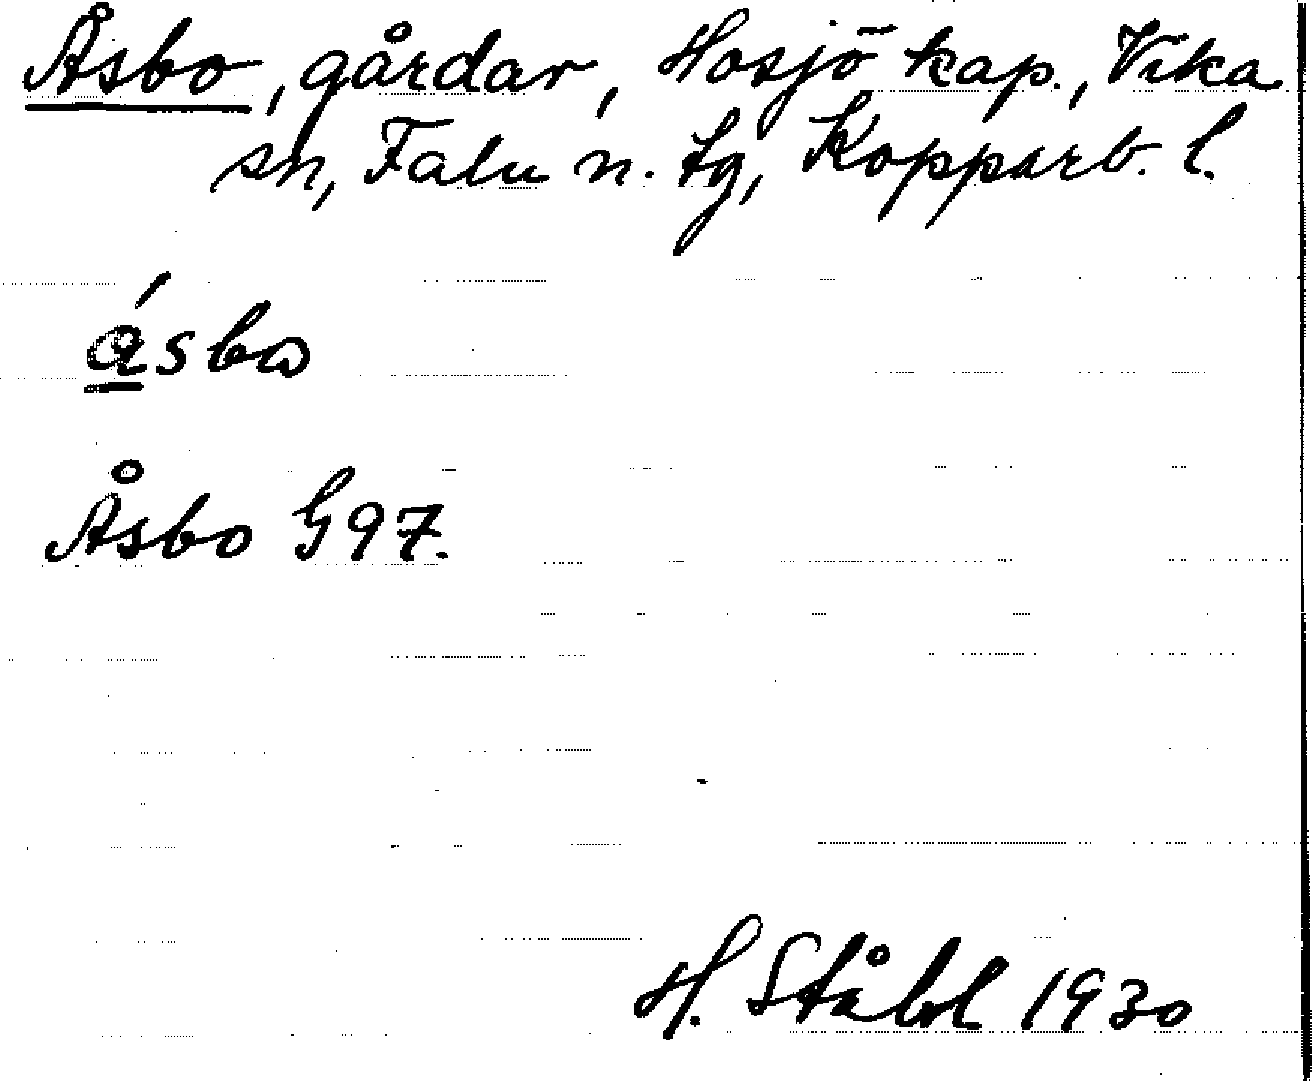 Åsbo, gårdar, Hosjö kap., Vika
sn, Falu n. tg, Kopparb. l.
ásbo
Åsbo G97.
H. Ståhl 1930